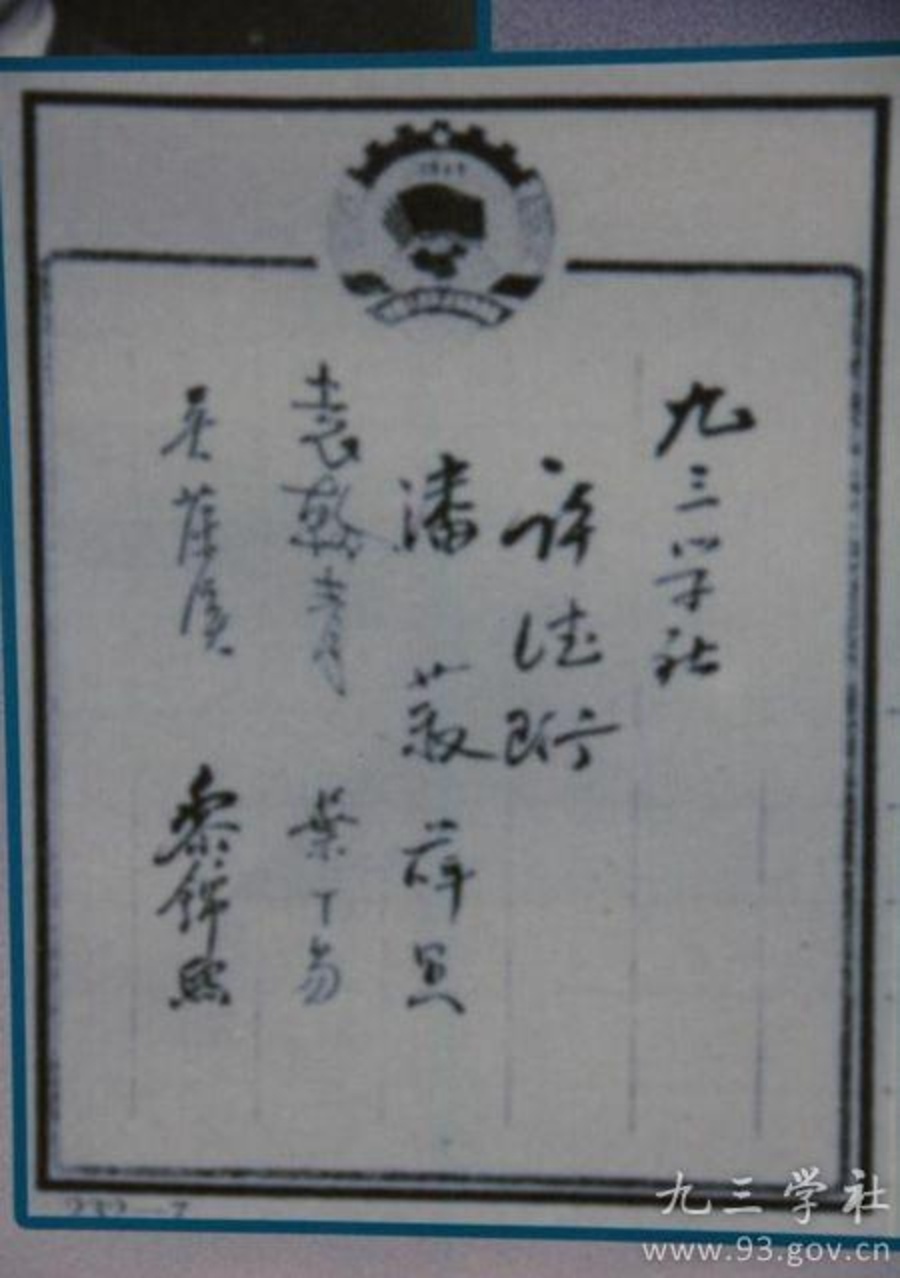 九三学社
許德珩
潘菽 薛愚
袁翰青 葉丁易
吴藻溪 黎錦熙
1949
232-7
九三学社
www.93.gov.cn